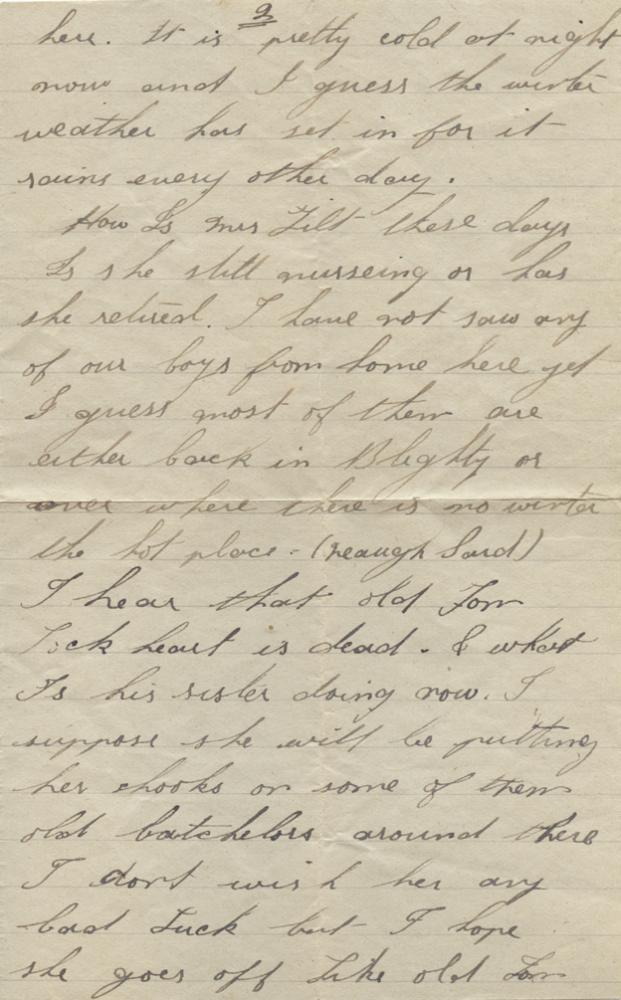 2
here. It is pretty cold at night
now and I guess the winter
weather has set in for it
rains every other day.
How Is mrs Tilt these days
Is she still nurseing or has
she retired. I have not saw any
of our boys from home here yet
I guess most of them are
either back in Blighty or
over where there is no winter
the hot place - (neaugh Said)
I hear that old Tom
Lockheart is dead. & what
Is his sister doing now. I
suppose she will be putting
her hooks on some of them
old batchelors around there
I dont wish her any
bad Luck but I hope
she goes off Like old Tom